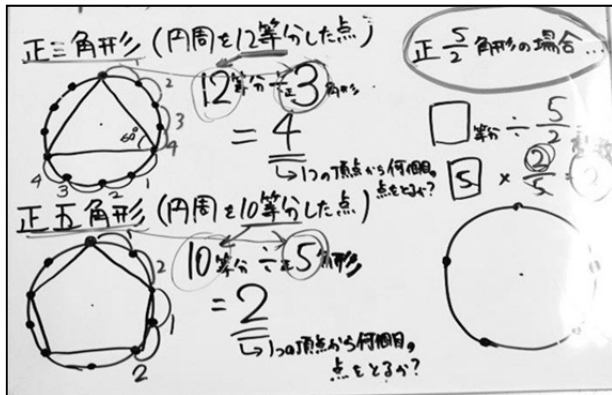 正三角形(円周を12等分した点)
12等分÷正3角形
= 4
↳1つの頂点から何個目の
点をとるか?
60°
1
2
3
4
4
3
2
1
正五角形(円周を10等分した点)
10等分÷正5角形
= 2
↳1つの頂点から何個目の
点をとるか?
1
2
1
2
正5/2角形の場合…
□等分÷5/2
5×2/5=2